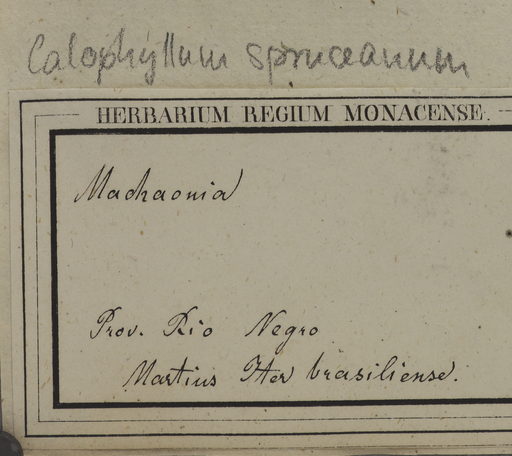 Calophyllum spruceanum
HERBARIUM REGIUM MONACENSE.
Machaonia
Prov. Rio Negro
Martius Iter brasiliense.